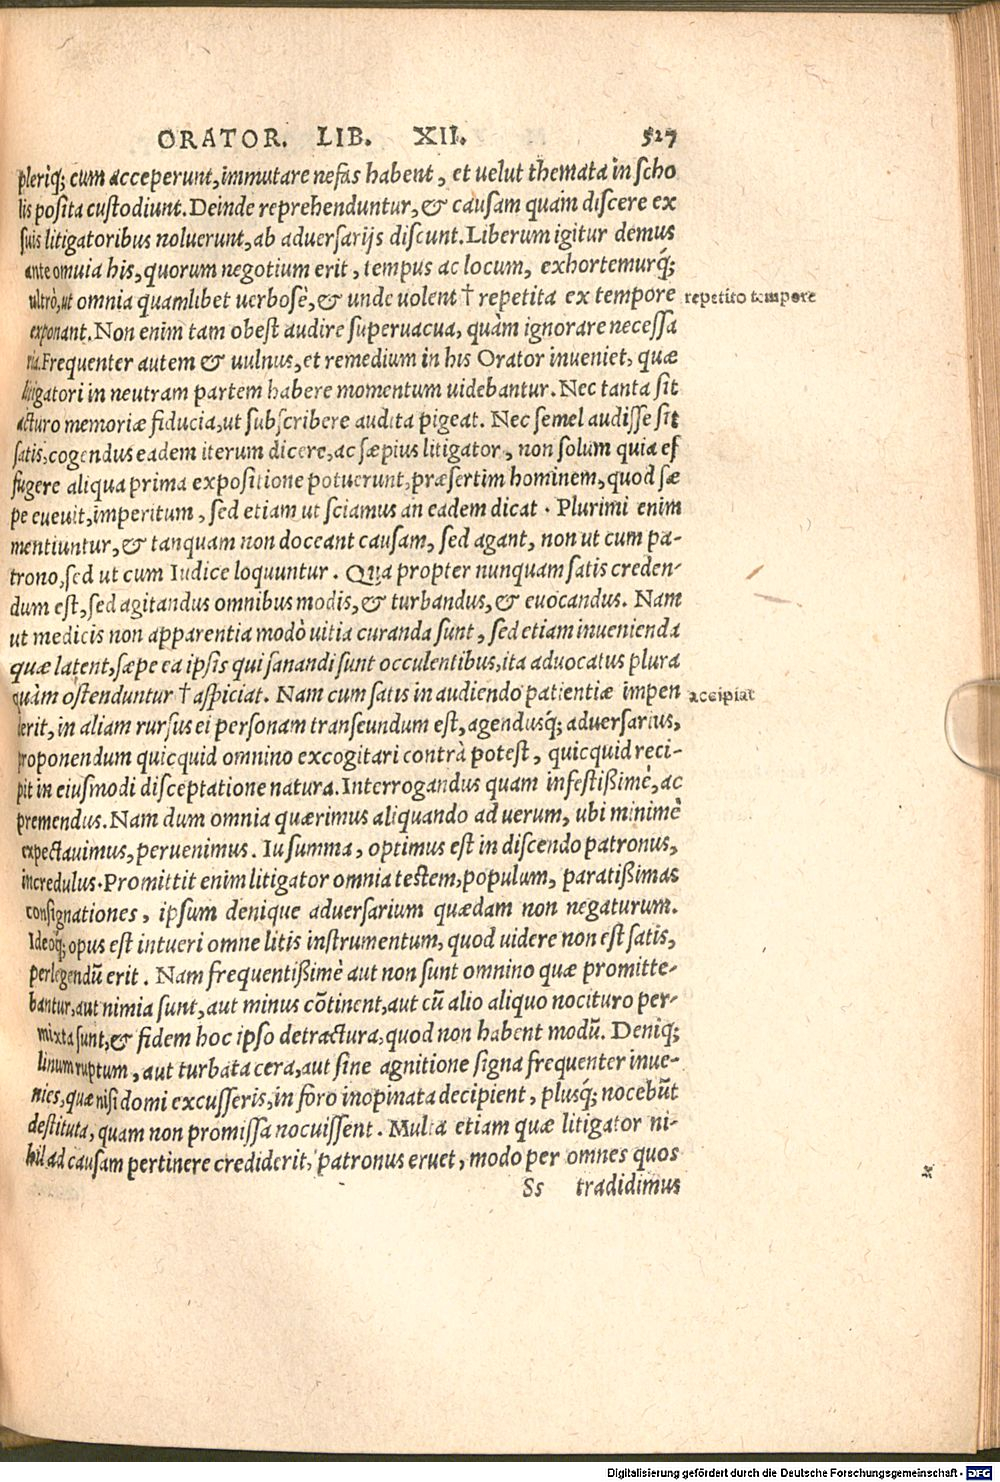 ORATOR. LIB. XII. 527
pleriq; cum acceperunt, immutare nefas habent, et uelut themata in scho
lis posita custodiunt. Deinde reprehenduntur, & causam quam discere ex
suis litigatoribus noluerunt, ab aduersarijs discunt. Liberum igitur demus
ante omuia his, quorum negotium erit, tempus ac locum, exhortemurq́;
ultrò, ut omnia quamlibet uerbosè, & unde uolent † repetita ex tempore
repetito tempore
exponant. Non enim tam obest audire superuacua, quàm ignorare necessa
ria. Frequenter autem & uulnus, et remedium in his Orator inueniet, quæ
litigatori in neutram partem habere momentum uidebantur. Nec tanta sit
acturo memoriæ fiducia, ut subscribere audita pigeat. Nec semel audisse sit
satis, cogendus eadem iterum dicere, ac sæpius litigator, non solum quia ef
fugere aliqua prima expositione potuerunt, præsertim hominem, quod sæ
pe eueuit, imperitum, sed etiam ut sciamus an eadem dicat. Plurimi enim
mentiuntur, & tanquam non doceant causam, sed agant, non ut cum pa-
trono, sed ut cum Iudice loquuntur. Qua propter nunquam satis creden-
dum est, sed agitandus omnibus modis, & turbandus, & euocandus. Nam
ut medicis non apparentia modò uitia curanda sunt, sed etiam inuenienda
quæ latent, sæpe ea ipsis qui sanandi sunt occulentibus, ita aduocatus plura
quàm ostenduntur † aspiciat. Nam cum satis in audiendo patientiæ impen
accipiat
derit, in aliam rursus ei personam transeundum est, agendusq́; aduersarius,
proponendum quicquid omnino excogitari contrà potest, quicquid reci-
pit in eiusmodi disceptatione natura. Interrogandus quam infestißimè, ac
premendus. Nam dum omnia quærimus aliquando ad uerum, ubi minimè
expectauimus, peruenimus. Iu summa, optimus est in discendo patronus,
incredulus. Promittit enim litigator omnia testem, populum, paratißimas
consignationes, ipsum denique aduersarium quædam non negaturum.
Ideoq́; opus est intueri omne litis instrumentum, quod uidere non est satis,
perlegendū erit. Nam frequentißimè aut non sunt omnino quæ promitte-
bantur, aut nimia sunt, aut minus cōtinent, aut cū alio aliquo nocituro per-
mixta sunt, & fidem hoc ipso detractura, quod non habent modū. Deniq;
linum ruptum, aut turbata cera, aut sine agnitione signa frequenter inue-
nies, quæ nisi domi excusseris, in foro inopinata decipient, plusq́; nocebūt
destituta, quam non promissa nocuissent. Multa etiam quæ litigator ni-
hil ad causam pertinere crediderit, patronus eruet, modo per omnes quos
Ss tradidimus
Digitalisierung gefördert durch die Deutsche Forschungsgemeinschaft - DFG